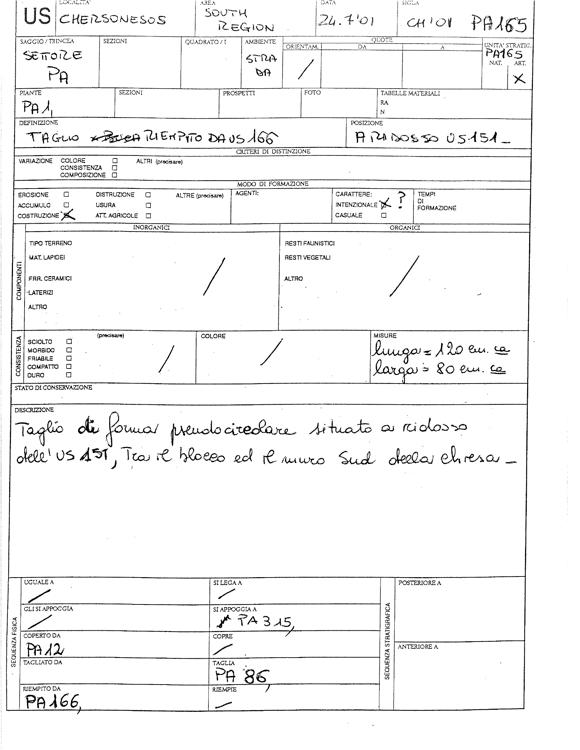 US
LOCALITA'
CHERSONESOS
AREA
SOUTH
REGION
DATA
24.7'01
SIGLA
CH'01 PA165
SAGGIO / TRINCEA
SETTORE
PA
SEZIONI
QUADRATO / I
AMBIENTE
STRA
DA
QUOTE
ORIENTAM.
DA
A
/
UNITA' STRATIG.
PA165
NAT. ART.
X
PIANTE
PA1,
SEZIONI
PROSPETTI
FOTO
TABELLE MATERIALI
RA
N
DEFINIZIONE
TAGLIO RIEMPITO DA US 166
POSIZIONE
A RIDOSSO US 151_
CRITERI DI DISTINZIONE
VARIAZIONE COLORE
CONSISTENZA
COMPOSIZIONE
ALTRI (precisare)
MODO DI FORMAZIONE
EROSIONE
ACCUMULO
COSTRUZIONE X
DISTRUZIONE
USURA
ATT. AGRICOLE
ALTRE (precisare)
AGENTI:
CARATTERE:
INTENZIONALE X ?
CASUALE
TEMPI
DI
FORMAZIONE
COMPONENTI
INORGANICI
TIPO TERRENO
MAT. LAPIDEI
FRR. CERAMICI
LATERIZI
ALTRO
/
ORGANICI
RESTI FAUNISTICI
RESTI VEGETALI
ALTRO
/
CONSISTENZA
SCIOLTO
MORBIDO
FRIABILE
COMPATTO
DURO
(precisare)
/
COLORE
/
MISURE
lunga = 120 cm. ca
larga = 80 cm. ca
STATO DI CONSERVAZIONE
DESCRIZIONE
Taglio di forma pseudocircolare situato a ridosso
dell' US 151, Tra il blocco ed il muro Sud della chiesa_
SEQUENZA FISICA
UGUALE A
/
SI LEGA A
/
GLI SI APPOGGIA
/
SI APPOGGIA A
PA315,
COPERTO DA
PA12
COPRE
/
TAGLIATO DA
TAGLIA
PA 86
RIEMPITO DA
PA166,
RIEMPIE
/
SEQUENZA STRATIGRAFICA
POSTERIORE A
ANTERIORE A